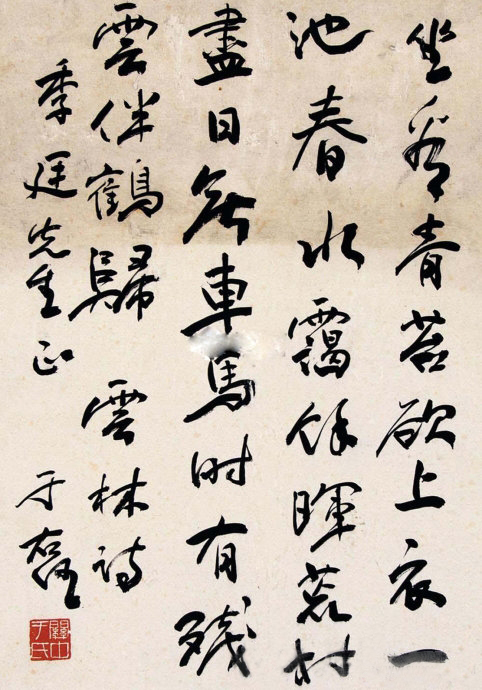 坐看青苔欲上衣一
池春水靄餘暉荒村
盡日無車馬时有殘
雲伴鶴歸 雲林詩
季廷先生正 于右任
關中
于氏